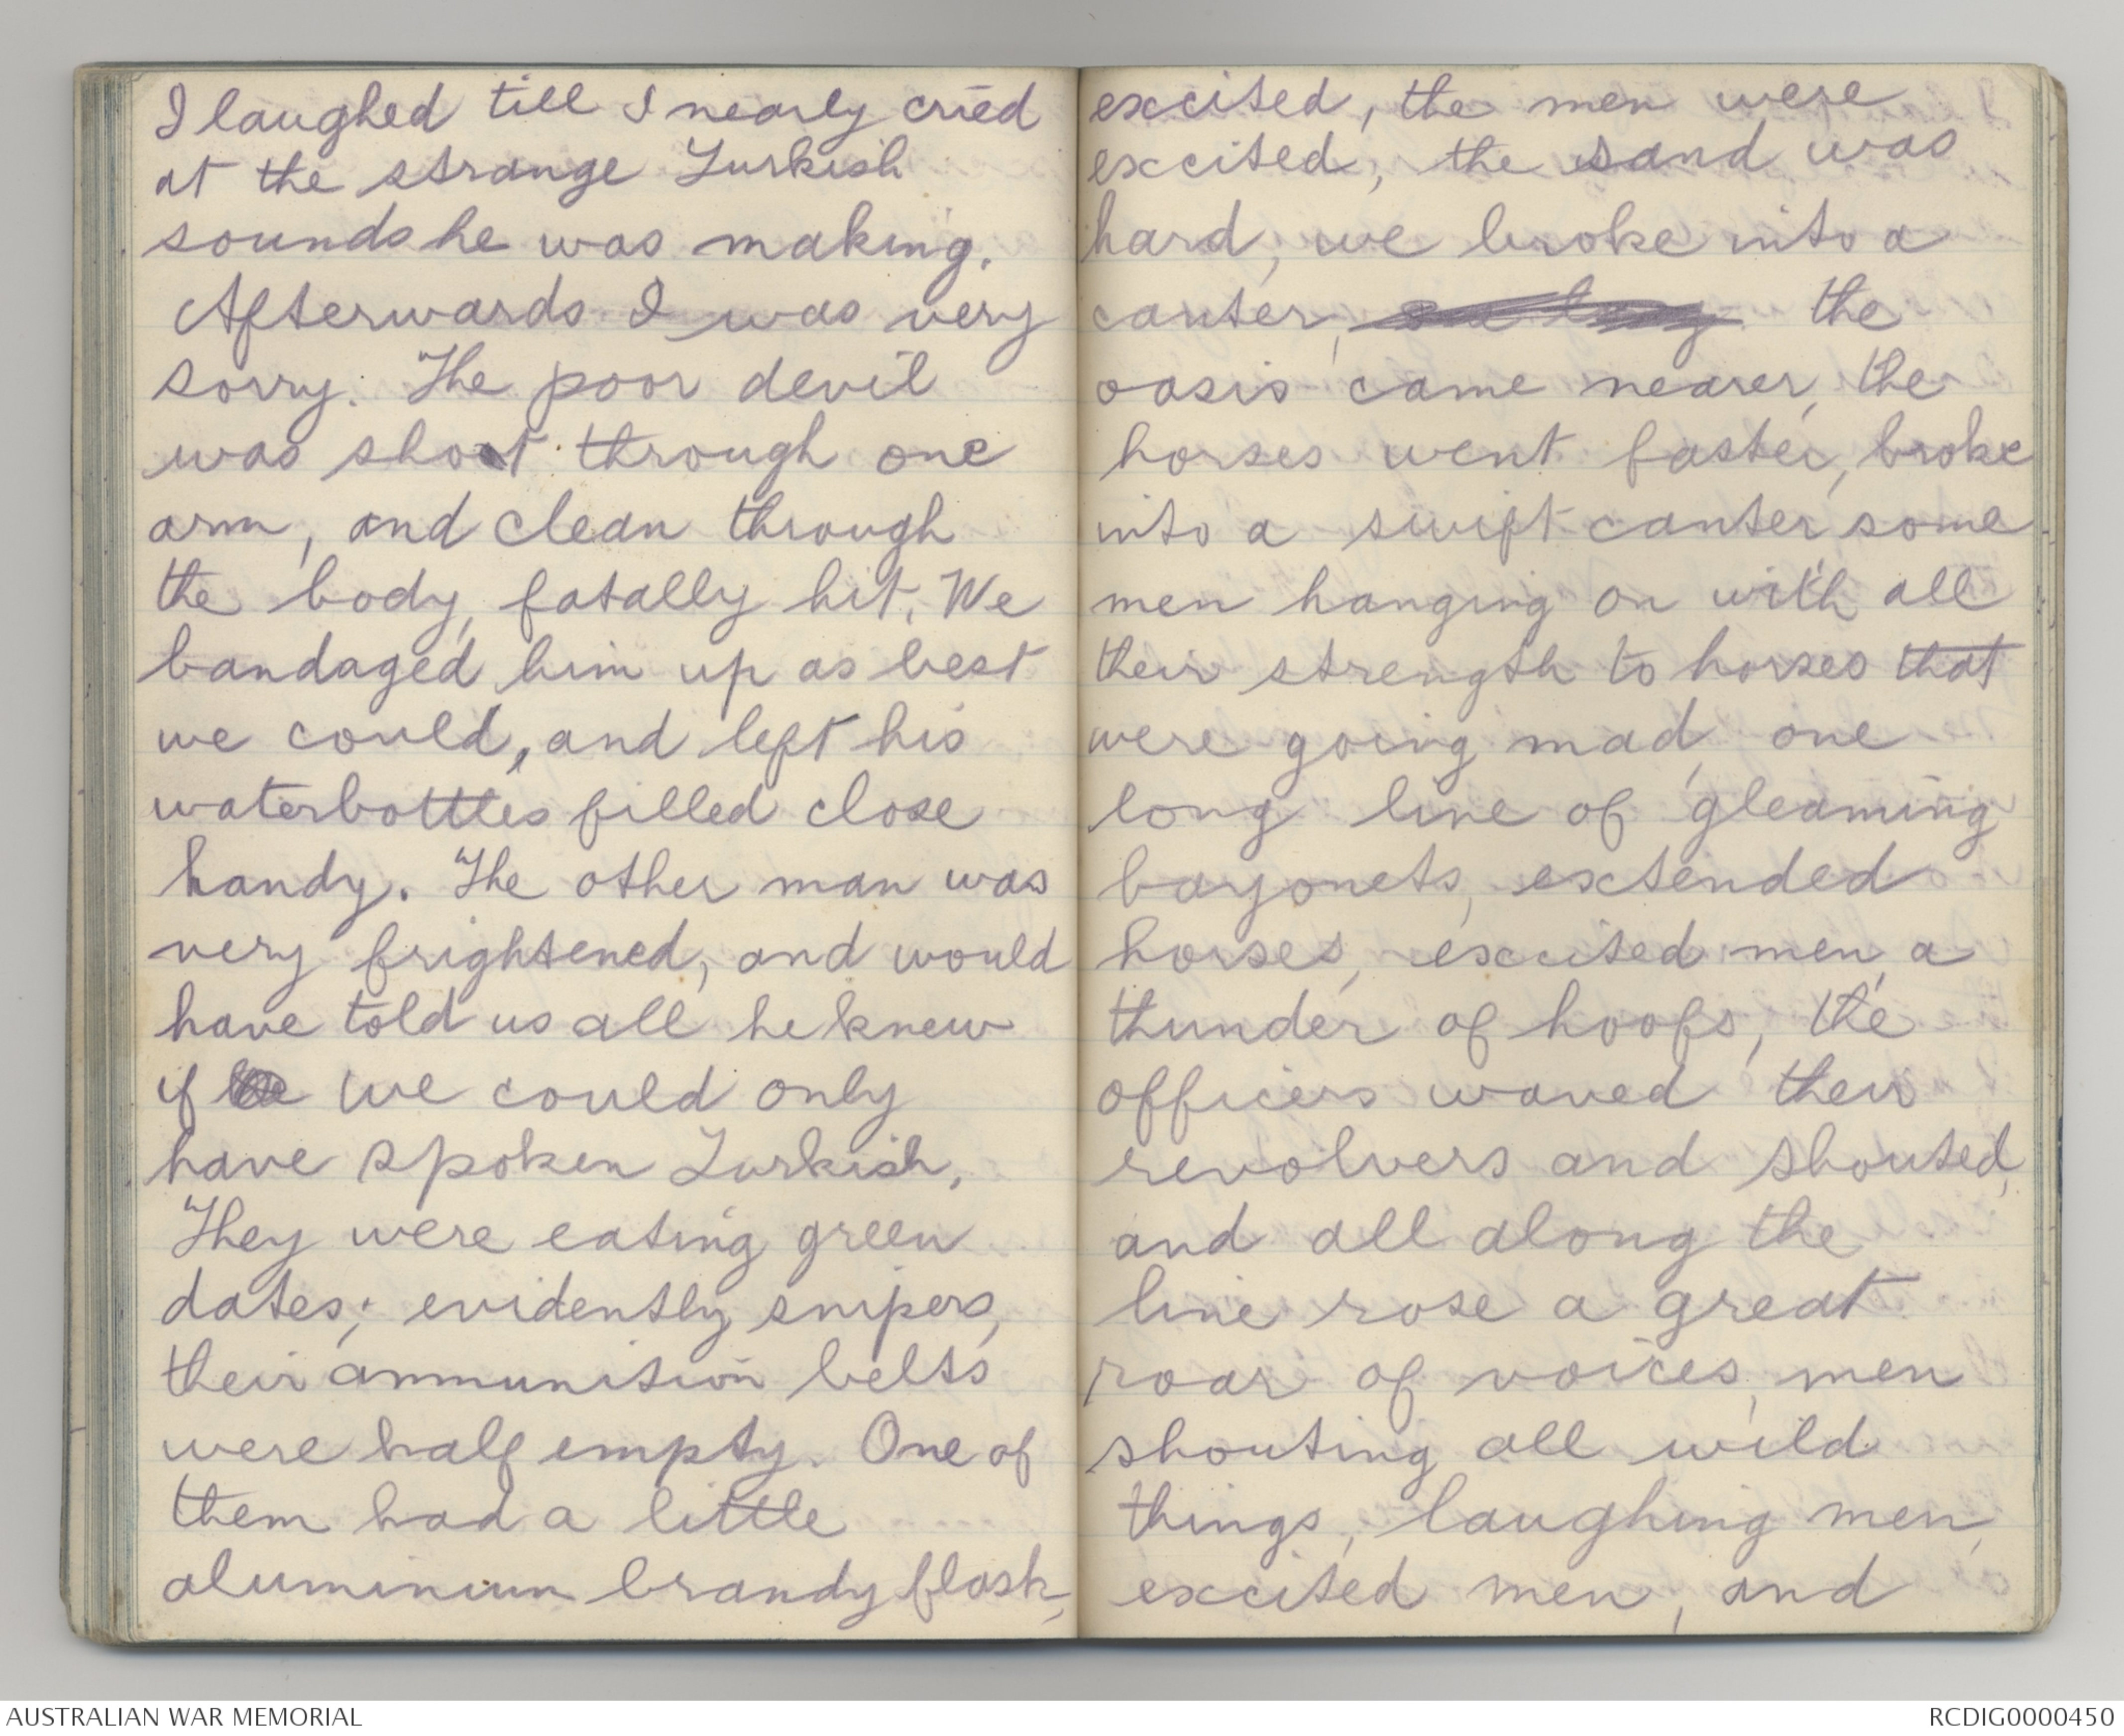 I laughed till I nearly cried
at the strange Turkish
sounds he was making.
Afterwards I was very
sorry. The poor devil
was shot through one
arm, and clean through
the body, fatally hit. We
bandaged him up as best
we could, and left his
waterbottles filled close
handy. The other man was
very frightened, and would
have told us all he knew
if we could only
have spoken Turkish.
They were eating green
dates; evidently snipers,
their ammunition belts
were half empty. One of
them had a little
aluminium brandy flask,
excited, the men were
excited, the sand was
hard, we broke into a
canter, the
oasis came nearer, the
horses went faster, broke
into a swift canter, some
men hanging on with all
their strength to horses that
were going mad, one
long line of gleaming
bayonets, extended
horses, excited men, a
thunder of hoofs, the
officers waved their
revolvers and shouted,
and all along the
line rose a great
roar of voices, men
shouting all wild
things, laughing men,
excited men, and
AUSTRALIAN WAR MEMORIAL
RCDIG0000450